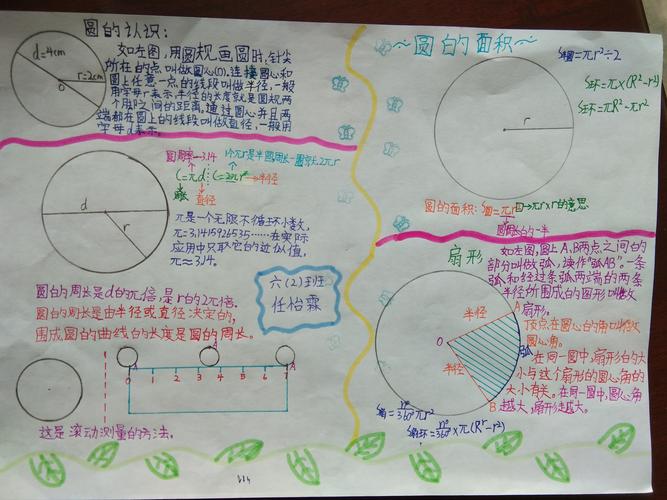 圆的认识:
d=4cm
r=2cm
O
如左图,用圆规画圆时,针尖
所在的点叫做圆心(O).连接圆心和
圆上任意一点的线段叫做半径,一般
用字母r表示,半径的长度就是圆规两
个脚之间的距离.通过圆心并且两
端都在圆上的线段叫做直径,一般用
字母d表示。
圆周率→3.14
1个πr是半圆周长一圈完长2πr
C=πd
C=2πr
→半径
周长
直径
d
r
π是一个无限不循环小数,
π=3.1415926535……在实际
应用中只取它的近似值,
π≈3.14.
圆的周长是d的π倍,是r的2π倍.
圆的周长是由半径或直径决定的,
围成圆的曲线的长度是圆的周长。
六(2)班
任怡霖
A
A
A
0 1 2 3 4 5 6 7
这是滚动测量的方法。
~圆的面积~
S半圆=πr²÷2
S环=π×(R²-r²)
S环=πR²-πr²
r
圆的面积:S圆=πr²→πr×r的意思
圆周长的一半
扇形
如左图,圆上A、B两点之间的
部分叫做弧,读作"弧AB"。一条
弧和经过条弧两端的两条
半径所围成的图形叫做
扇形。
顶点在圆心的角叫做
圆心角。
在同一圆中,扇形的大
小与这个扇形的圆心角的
大小有关。在同一圆中,圆心角
越大,扇形越大。
半径
A
O
弧
半径
B
S扇=n°/360°πr²
S扇环=n°/360°×π(R²-r²)